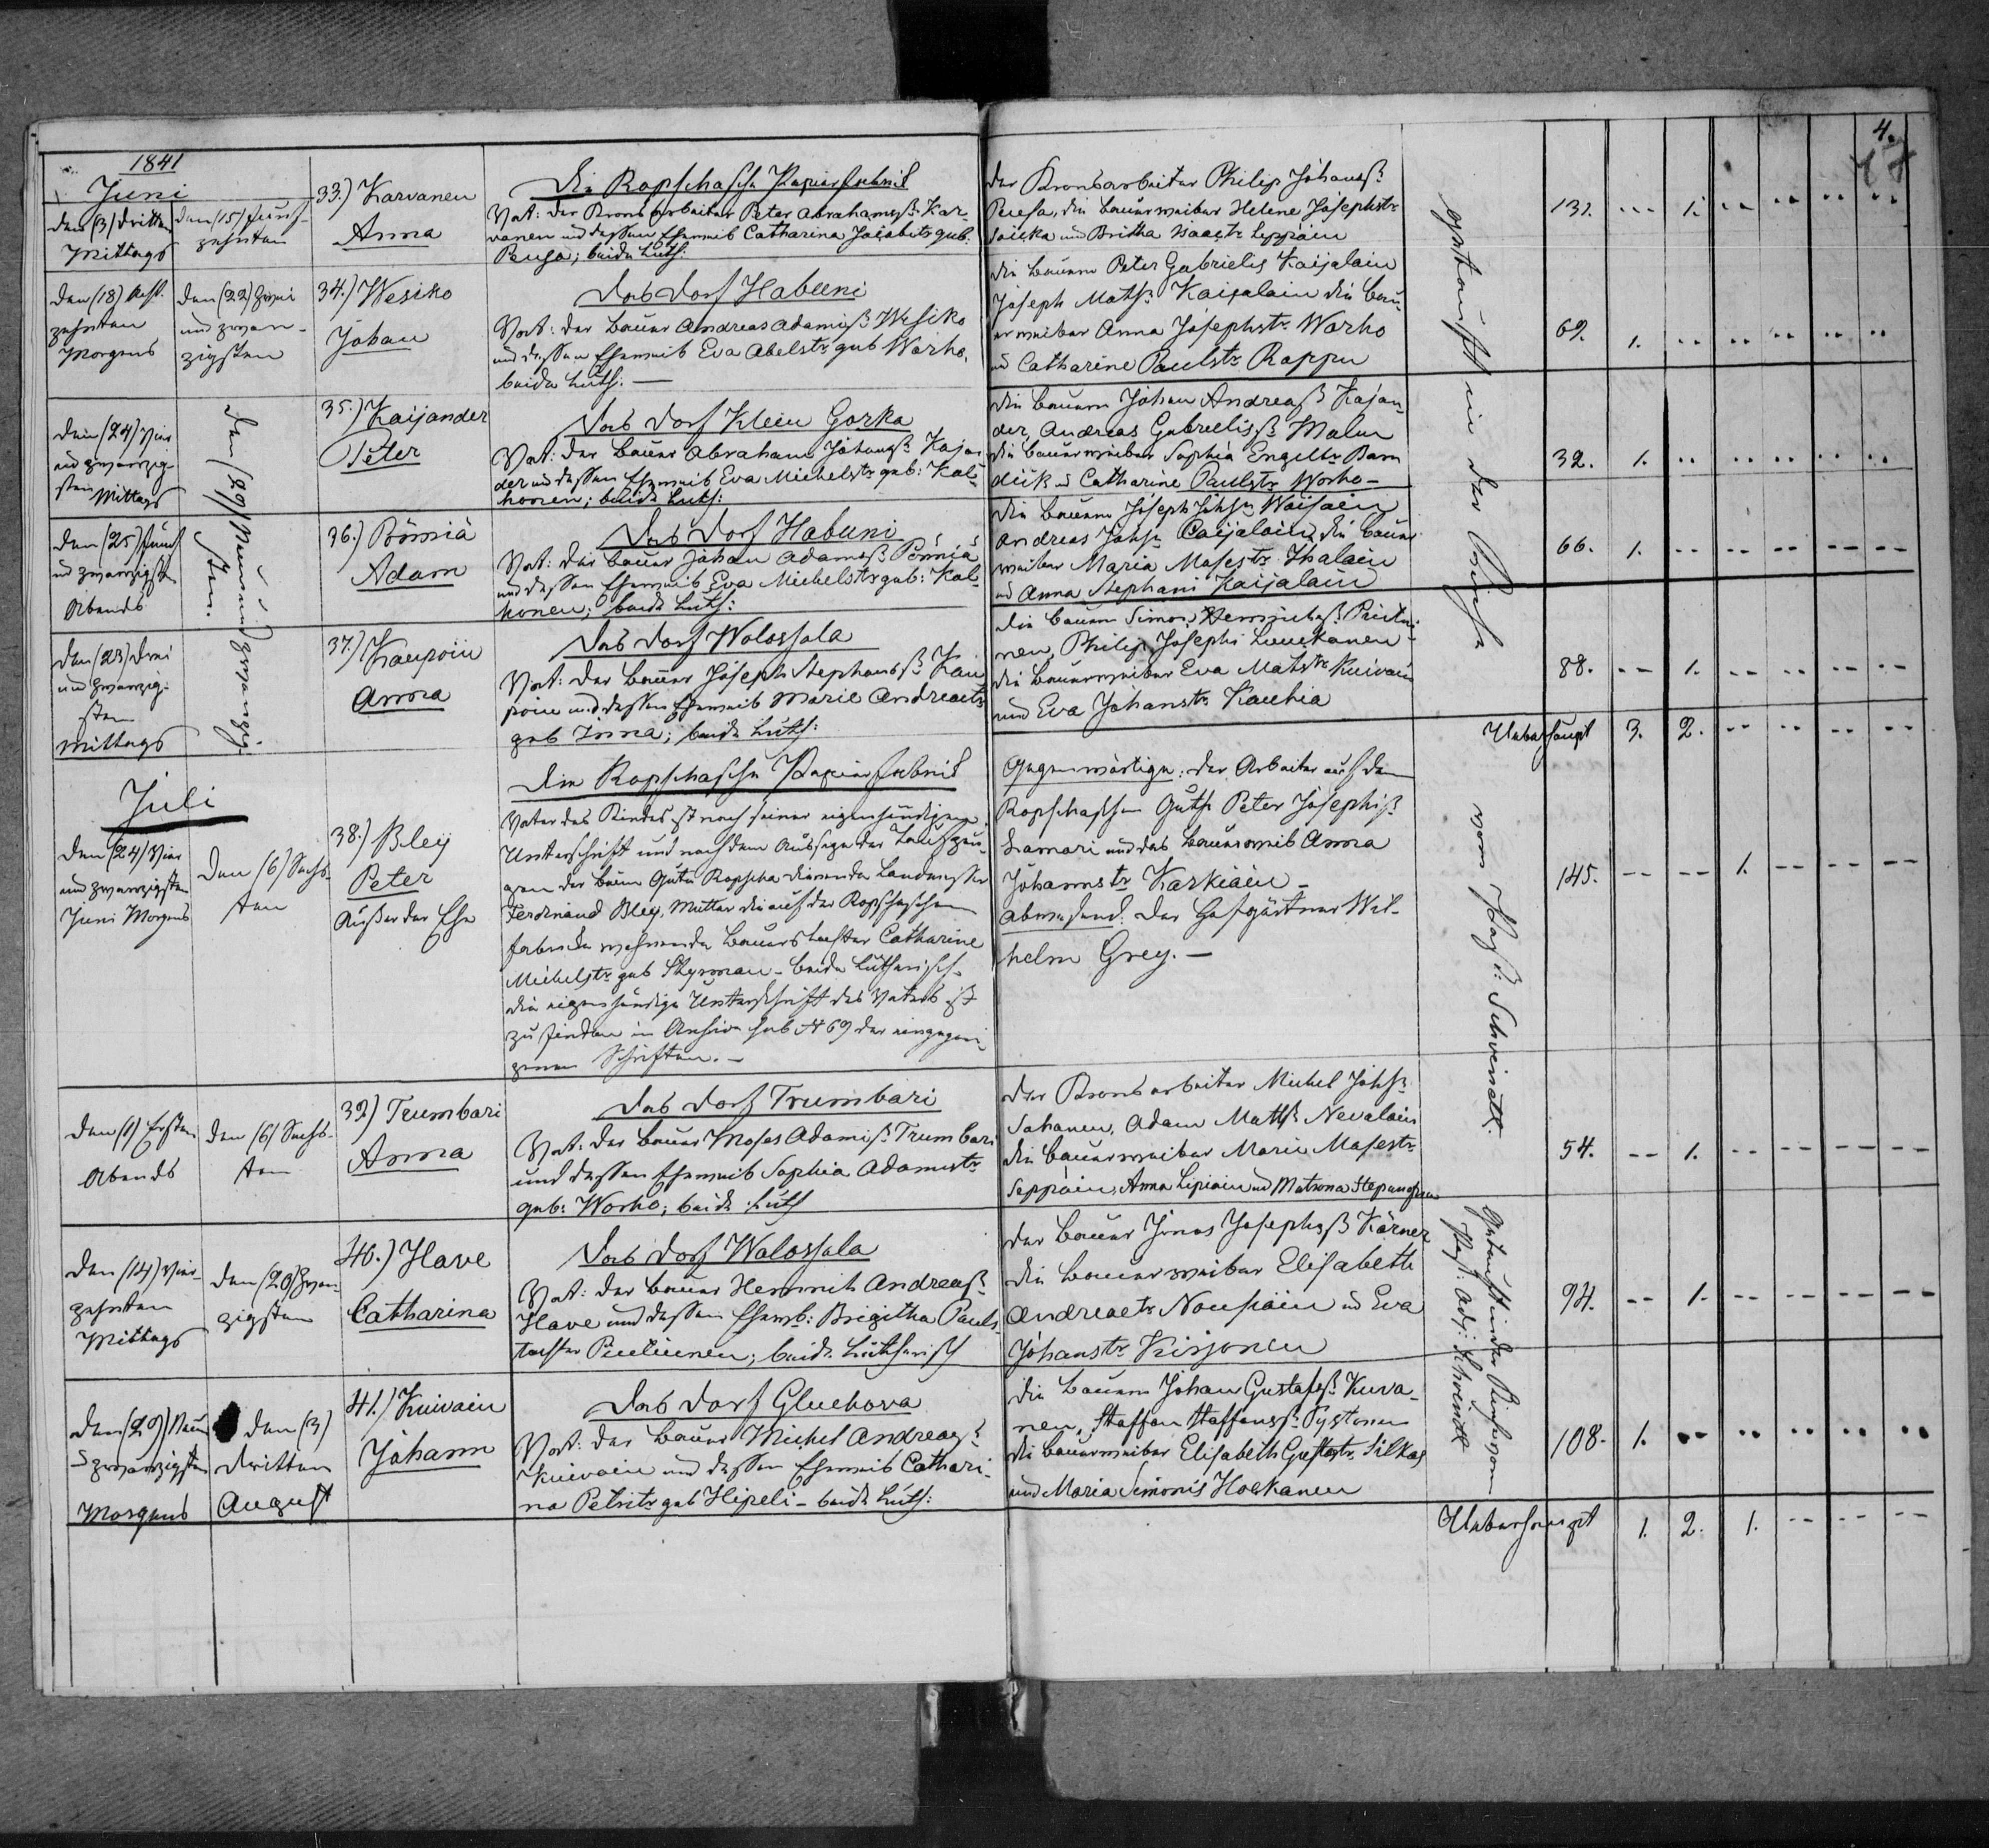 1841
Juni
den (3) dritten
Mittags
den (15) fünf-
zehnten
33.) Karvanen
Anna
Die Ropschasche Papierfabrik
Vat: der Kronsarbeiter Peter Abrahamsß. Kar-
vanen und dessen Eheweib Catharina Jacobstr geb.
Peusa; beide Luth:
der Kronsarbeiter Philip Johansß.
Peusa, die Bauerweiber Helene Josephstr
und Britha Isaacstr Leppäin
131. 1.
4.
den (18) Acht-
zehnten
Morgens
den (22) zwei
und zwan-
zigsten
34.) Wesiko
Johan
das Dorf Habuni
Vat: der Bauer Andreas Adamisß Wesiko
und dessen Eheweib Eva Abelstr geb Worho,
beide Luth. —
die Bauern Peter Gabrielis Kaijalain
Joseph Mathsß. Kaijalain die Bau-
erweiber Anna Josephstr. Worho
und Catharine Paulstr. Rappu
69. 1.
den (24) vier
und zwanzig-
sten Mittags
den (29) Neunundzwanzig-
sten.
35.) Kaijander
Peter
das Dorf Klein Gorka
Vat: der Bauer Abraham Johansß Kajan
der und dessen Eheweib Eva Michelstr geb: Kol-
honen; beide Luth:
die Bauern Johan Andreasß Kajan-
der, Andreas Gabrielisß. Malm
die Bauerweiber Sophia Engelbr. Bam
diik u Catharine Paulstr Worho —
32. 1.
den (25) fünf
und zwanzigst
Abends
36.) Pömiä
Adam
das Dorf Habuni
Vat: der Bauer Johan Adamsß Pömiä
und dessen Eheweib Eva Michelstr geb: Kol-
konen; beide Luth:
die Bauern Joseph Johsß. Woisain
Andreas Johsß Caijalain, die Bauer
weiber Maria Mosestr. Ihalain
und Anna Stephani Kaijalain
66. 1.
den (23) drei
und zwanzig-
sten
Mittags
37.) Kaupoin
Anna
das Dorf Wolossala
Vat: der Bauer Joseph Stephansß Kau
poin und dessen Eheweib Marie Andreaetr
geb Inna; beide Luth:
die Bauern Simon Heinrichsß. Peutu-
nen, Philip Josephi Luukanen
die Bauerweiber Eva Mathstr. Kuivain
und Eva Johanstr. Kauhia
88. 1.
getauft in der Kirche
vom Past: Schwindt.
Ueberhaupt 3. 2.
Juli
den (24) vier
und zwanzigsten
Juni Morgens
den (6) Sechs-
ten
38.) Bley
Peter
Außer der Ehe
Die Ropschasche Papierfabrik
Vater des Kindes ist nach seiner eigenhändigen
Unterschrift und nach dem Aussage der Taufzeu-
gen der beim Gute Ropscha dienende
Ferdinand Bley, Mutter die auf der Ropschaschen
Fabrike wohnende Bauerstochter Catharine
Michelstr. geb Skyman - beide Lutherisch.
die eigenhändige Unterschrift des Vaters ist
zu finden im Archiv sub N 69 der eingegan-
genen Schriften. —
Gegenwärtige: der Arbeiter auf dem
Ropschaschen Gute Peter Josephisß
Lamari und das Bauerweib Anna
Johannstr Karkiain —
Abwesend: der Hofgärtner Wil-
helm Grey. —
145. 1.
den (1) Ersten
Abends
den (6) Sechs-
ten
39) Trumbari
Anna
das Dorf Trumbari
Vat: der Bauer Moses Adamisß. Trumbari
und dessen Eheweib Sophia Adamstr
geb: Worho; beide Luth
der Kronsarbeiter Michel Johsß.
Sahanen, Adam Mathsß Nevalain
die Bauerweiber Marie Mosestr.
Seppäin, Anna Lipiain und Matrona Stepanofna
54. 1.
den (14) Vier-
zehnten
Mittags
den (20) zwan-
zigsten
40.) Ilave
Catharina
das Dorf Wolossala
Vat: der Bauer Heinrich Andreasß
Ilave und dessen Ehewb: Brigitha Pauls-
tochter Piutunen; beide Lutherisch
der Bauer Jonas Josephsß Kärner
die Bauerweiber Elisabeth
Andreaetr Noupäin u Eva
Johanstr Kirjonen
94. 1.
getauft in der Kirche vom
Past: Adj: Schwindt
den (29) Neun
u zwanzigsten
Morgens
den (3)
dritten
August
41.) Kuivain
Johann
das Dorf Gluchova
Vat: der Bauer Michel Andreasß
Kuivain und dessen Eheweib Cathari-
na Petristr geb Hipeli - beide Luth:
die Bauern Johan Gustafsß. Kuva-
nen, Staffan Staffansß. Pystonen
die Bauerweiber Elisabeth Gustastr. Silkas
und Maria Simonis Hoekanen
108. 1.
Ueberhaupt 1. 2. 1.